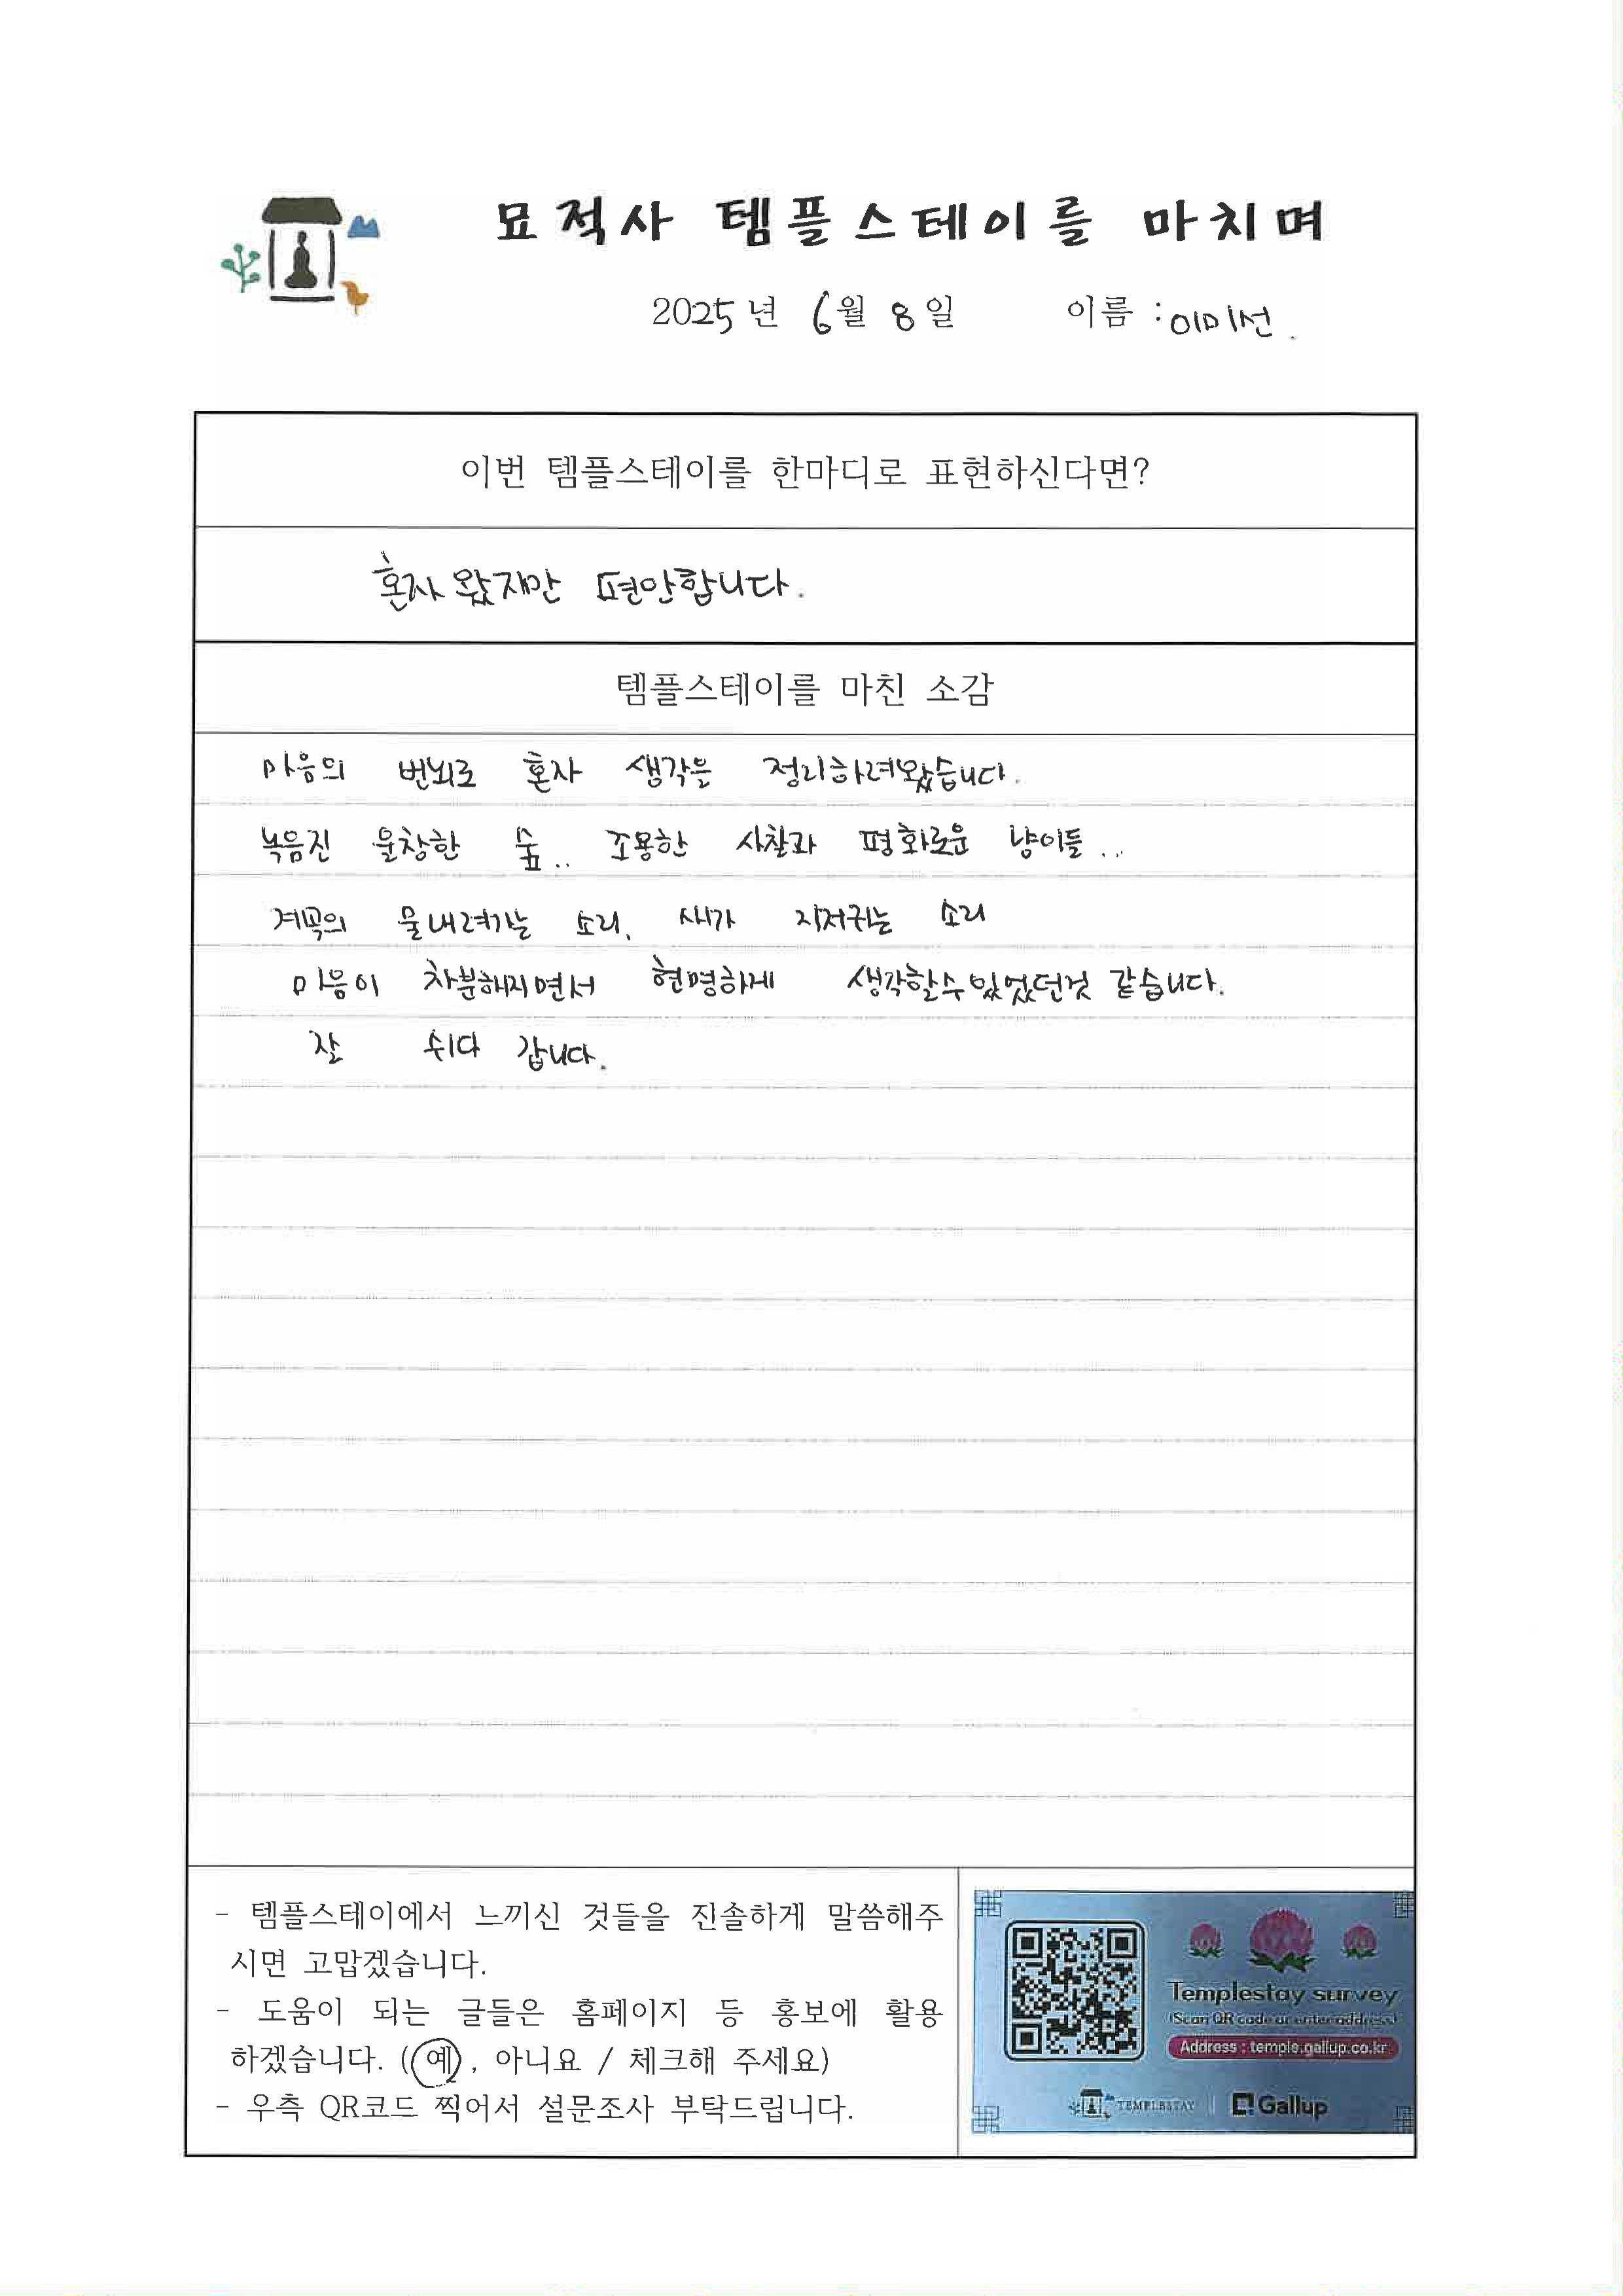 묘적사 템플스테이를 마치며
2025년 6월 8일 이름 : 이미선.
이번 템플스테이를 한마디로 표현하신다면?
혼자 왔지만 편안합니다.
템플스테이를 마친 소감
마음의 번뇌로 혼자 생각을 정리하려왔습니다.
녹음진 울창한 숲.. 조용한 사찰과 평화로운 냥이들...
계곡의 물내려가는 소리. 새가 지저귀는 소리
마음이 차분해지면서 현명하게 생각할수있었던것 같습니다.
잘 쉬다 갑니다.
- 템플스테이에서 느끼신 것들을 진솔하게 말씀해주
시면 고맙겠습니다.
- 도움이 되는 글들은 홈페이지 등 홍보에 활용
하겠습니다. (예, 아니요 / 체크해 주세요)
- 우측 QR코드 찍어서 설문조사 부탁드립니다.
Templestay survey
(Scan QR code or enter address)
Address : temple.gallup.co.kr
TEMPLESTAY Gallup